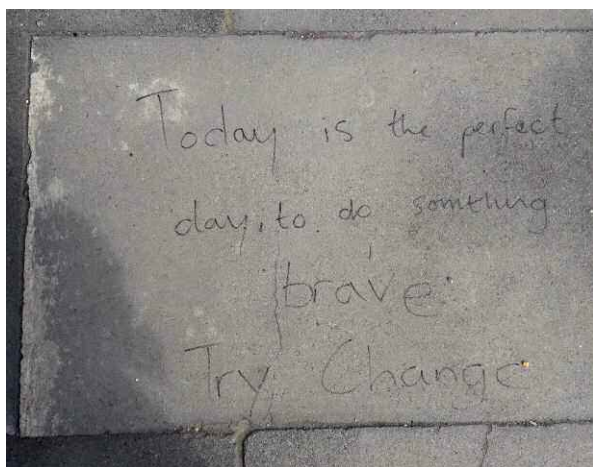 Today is the perfect
day, to do somthing
brave.
Try Change